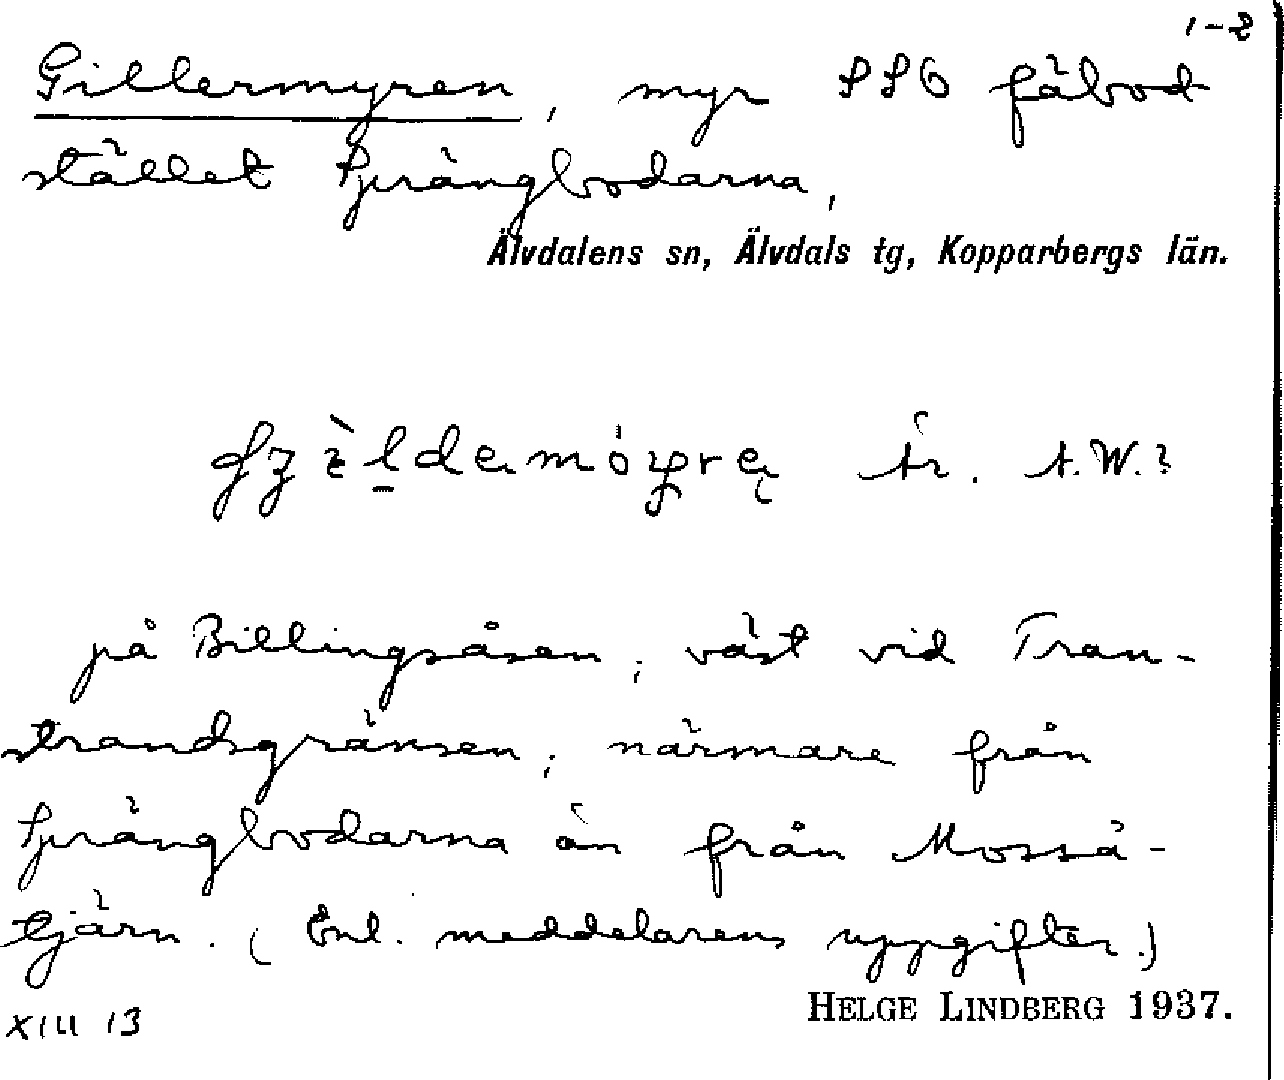 1-2
Gillermyren, myr SSO fäbod
stället Sprängbodarna,
Älvdalens sn, Älvdals tg, Kopparbergs län.
på Billingsåsen, väst vid Tran-
strandsgränsen, närmare från
Sprängbodarna än från Mosså-
tjärn. (Enl. meddelarens uppgifter.)
HELGE LINDBERG 1937.
XIII 13